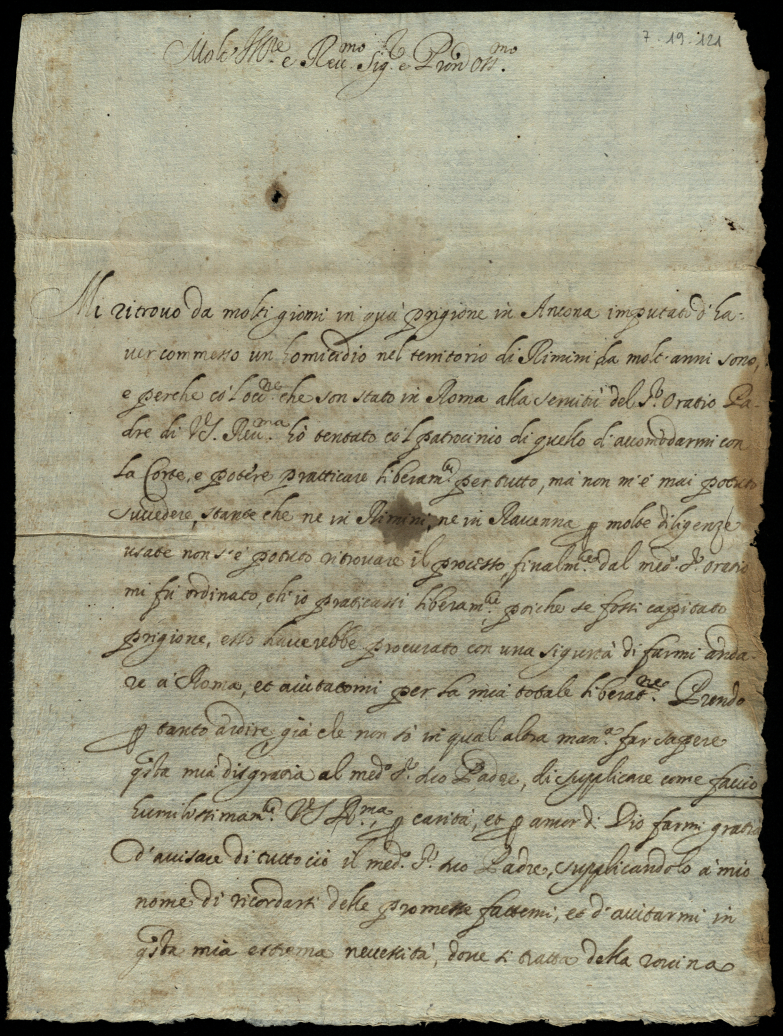 7 - 19 - 121
Molt' Ill.re e Reu.mo Sig.r e Pron Oss.mo
Mi ritrouo da molti giorni in quà prigione in Ancona imputato d'ha-
uer commesso un homicidio nel territorio di Rimini da molt'anni sono,
e perche cò l'occ.ne che son stato in Roma alla seruitù del S.r Oratio Pa-
dre di V.S. Reu.ma hò tentato co'l patrocinio di quello di accomodarmi con
la Corte, e potere pratticare liberam.te per tutto, mà non m'è mai potuto
succedere, stante che ne in Rimini, ne in Rauenna p molte diligenze
usate non s'è potuto ritrouare il processo, finalm.te dal med.o S.r Oratio
mi fù ordinato, ch'io praticassi liberam.te, poiche se fossi capitato
prigione, esso hauerebbe procurato con una sigurtà di farmi anda-
re à Roma, et aiutatomi per la mia totale liberat.ne. Prendo
p tanto ardire, già che non sò in qual altra man.a far sapere
q'sta mia disgratia al med.o S.r suo Padre, di supplicare come faccio
humilissimam.te V.S. R.ma, p carità, et p amor di Dio farmi gratia
d'auisare di tutto ciò il med.o S.r suo Padre, supplicandolo à mio
nome di ricordarsi delle promesse fattemi, et d'aiutarmi in
q'sta mia estrema necessità, doue si tratta della rouina